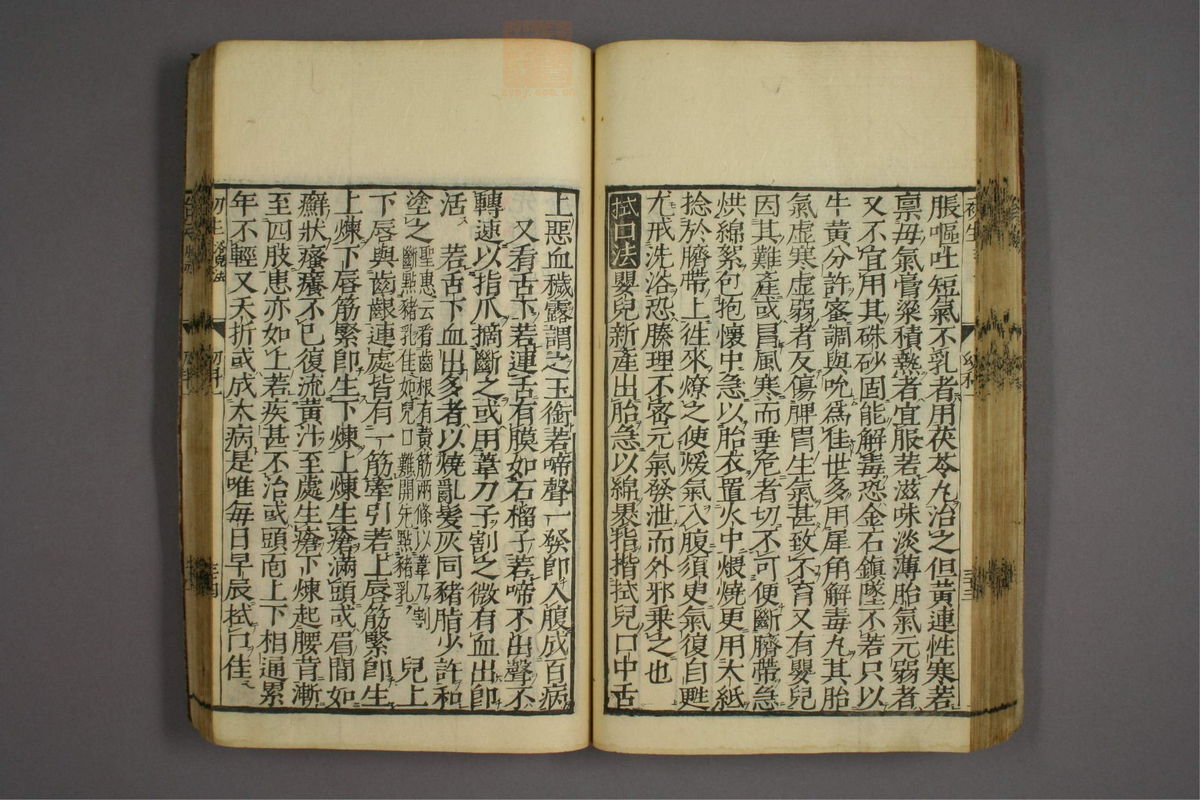 脹嘔吐短氣不乳者用茯苓丸治之但黃連性寒若
稟母氣膏粱積熱者宜服若滋味淡薄胎氣元弱者
又不宜用其硃砂固能解毒恐金石鎮墜不若只以
牛黃分許蜜調與吮爲佳世多用犀角解毒丸其胎
氣虛寒虛弱者反傷脾胃生氣甚致不育又有嬰兒
因其難產或冒風寒而垂危者切不可便斷臍帶急
烘綿絮包抱懷中急以胎衣置火中煨燒更用大紙
捻於臍帶上徃來燎之使煖氣入腹須臾氣復自甦
尤戒洗浴恐腠理不密元氣發泄而外邪乗之也
拭口法 嬰兒新產出胎急以綿裹指揩拭兒口中舌
上惡血穢露謂之玉銜若啼聲一發卽入腹成百病
又看舌下若連舌有膜如石榴子若啼不出聲不
轉速以指爪摘斷之或用葦刀子割之微有血出卽
活 若舌下血出多者以燒亂髮灰同豬脂少許和
塗之 聖惠云看齒根有黃筋兩條以葦刀割
斷點豬乳佳如兒口難開先點豬乳 兒上
下唇與齒齦連處皆有一筋牽引若上唇筋緊卽生
上煉下唇筋緊卽生下煉上煉生瘡滿頭或眉間如
癬狀瘙癢不已復流黃汁至處生瘡下煉起腰背漸
至四肢患亦如上若疾甚不治或頭面上下相通累
年不輕又夭折或成大病是唯每日早辰拭口佳
初生
幼科一
三十四